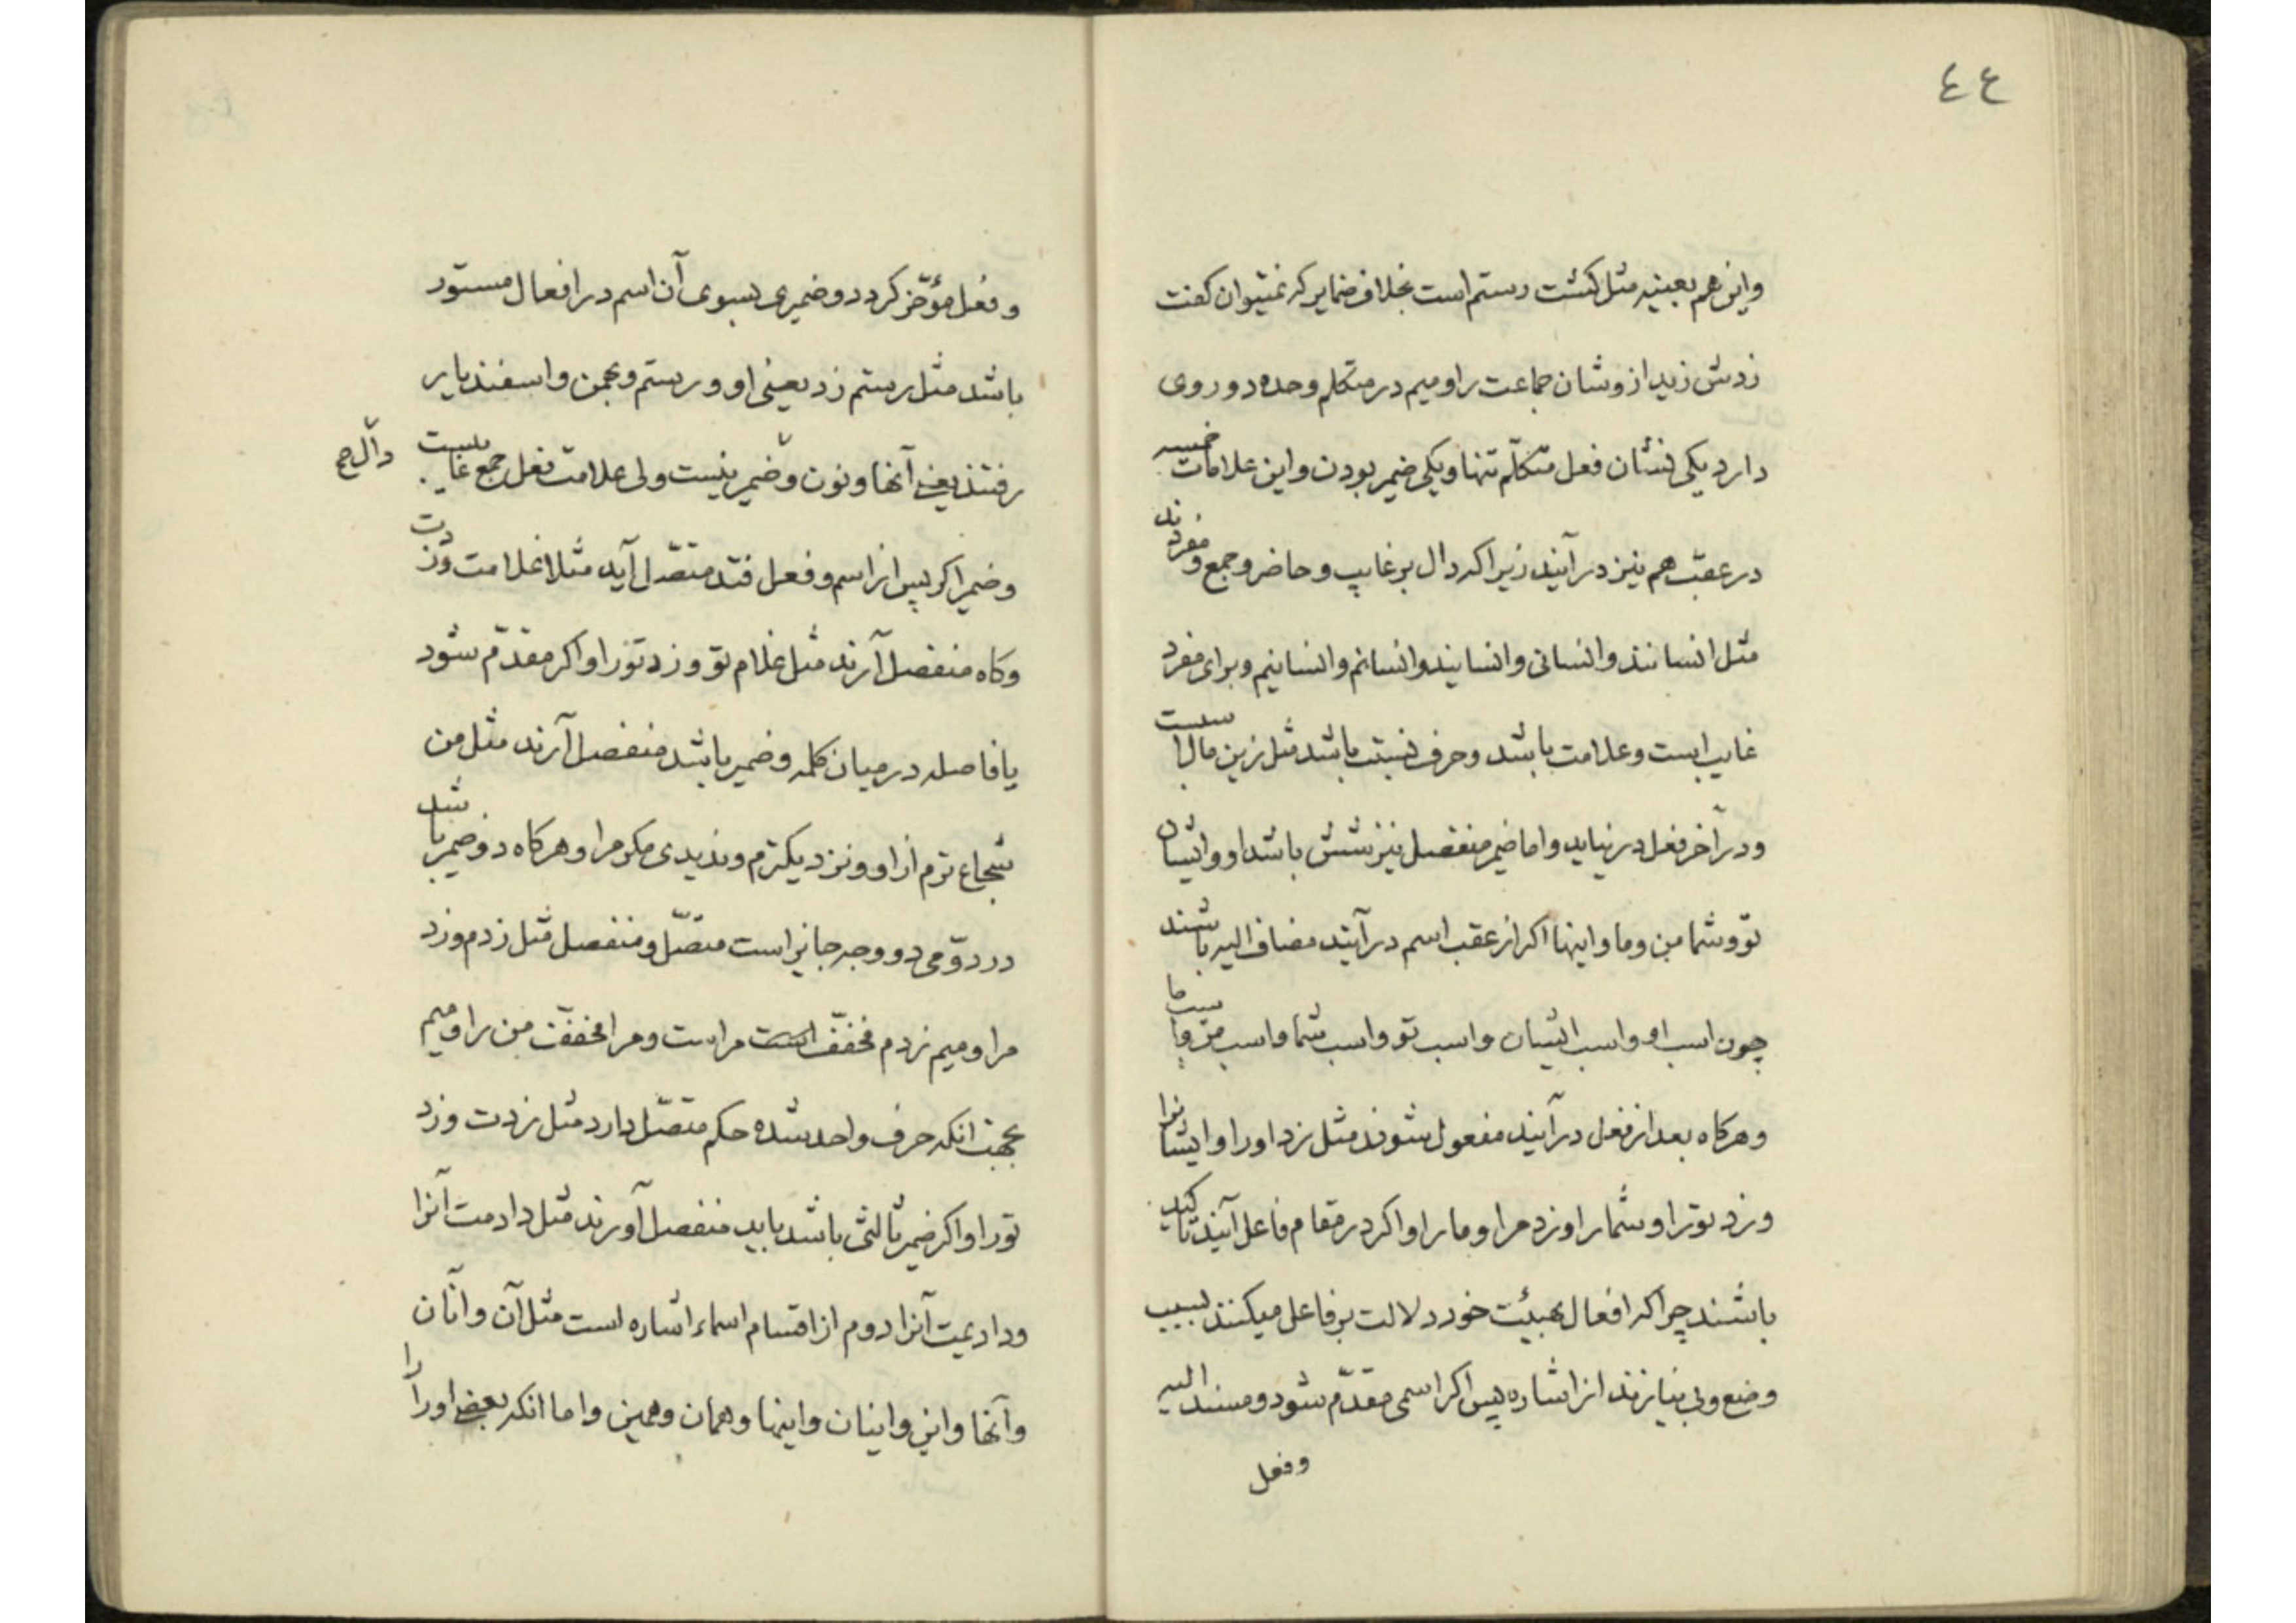 ٤٤
واین هم بعینه مثل کشت رستم است بخلاف ضمایر که نمیتوان کفت
زدش زید از وشان جماعت را ومیم در متکلم وحده دو روی
دارد یکی نشان فعل متکلّم تنها ویکی ضمیر بودن واین علامات خمسه
در عقب هم نیز در آیند زیرا که دال بر غایب وحاضر وجمع ومفردند
مثل انسانند وانسانی وانسانید وانسانم وانسانیم وبرای مفرد
غایب است وعلامت باشد وحرف نسبت باشد مثل زین مال
ودر آخر فعل در نیاید واما ضمیر منفصل نیز شش باشد او وایشان
تو وشما من وما واینها اکر از عقب اسم در آیند مضاف الیه باشند
چون اسب او واسب ایشان واسب تو واسب شما واسب من وما
وهرکاه بعد از فعل در آیند مفعول شوند مثل زد اورا وایشانرا
وزد تورا وشمارا وزد مرا ومارا واکر در مقام فاعل آیند تاکید
باشند چرا که افعال بهیئت خود دلالت بر فاعل میکنند بسبب
وضع وبی نیازند از اشاره پس اکر اسمی مقدّم شود ومسند الیه
وفعل
وفعل مؤخّر کردد وضمیری بسوی آن اسم در افعال مستور
باشد مثل رستم زد یعنی او ورستم وبهمن واسفندیار
رفتند یعنی آنها ونون وضمیر نیست ولی علامت فعل جمع غایبست
ودال جمع
وضمیر اکر پس از اسم وفعل فتد متصّل آید مثلا غلامت وزدت
وکاه منفصل آرند مثل غلام تو وزد تورا واکر مقدّم شود
یا فاصله در میان کلمه وضمیر باشد منفصل آرند مثل من
شجاع ترم از او ونزدیکترم وندیدی مکر مرا وهرکاه دو ضمیر باشد
در دوّمی دو وجه جایز است متصّل ومنفصل مثل زدم وزد
مرا ومیم زدم مخفّف است مراست ومرا مخفّف من را ومیم
بجهت انکه حرف واحد شده حکم متصّل دارد مثل زدت وزد
تورا واکر ضمیر ثالثی باشد باید منفصل آورند مثل دادمت آنرا
ودادیمت آنرا دوم از اقسام اسماء اشاره است مثل آن وآنان
وآنها واین واینان واینها وهمان وهمین واما انکه بعضی اورا را